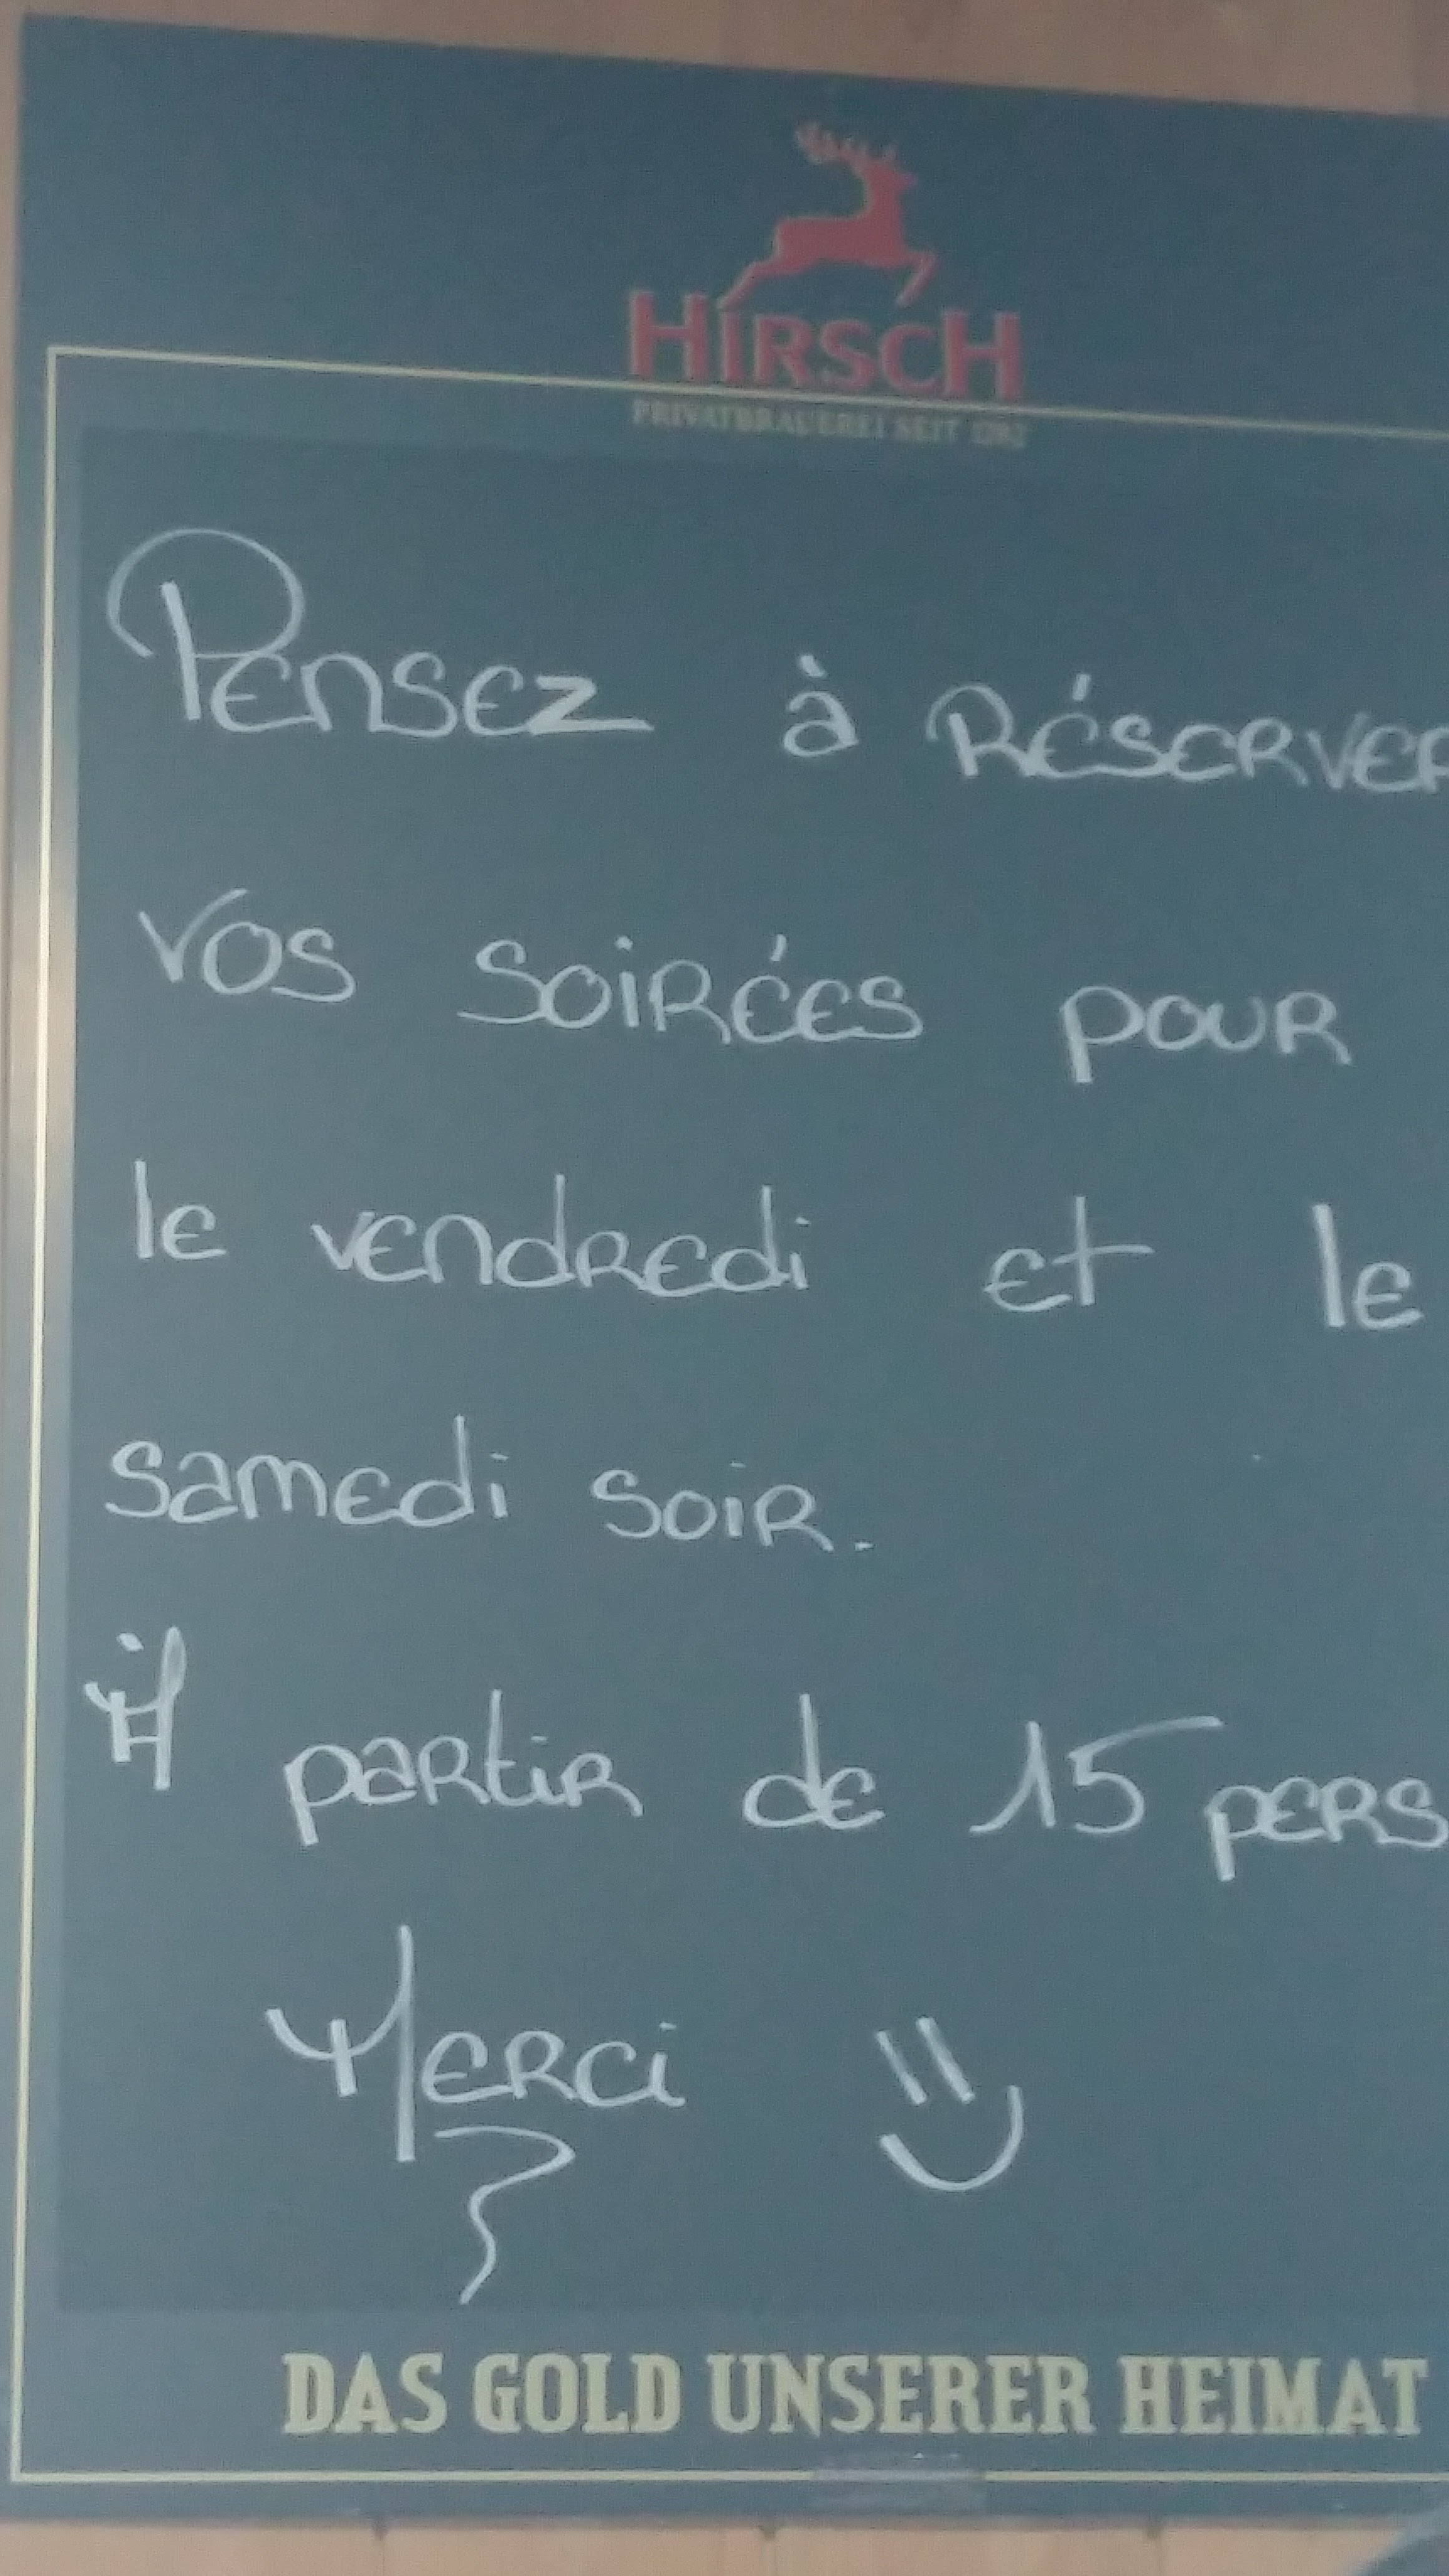 HIRSCH
PRIVATBRAUEREI SEIT 1782
Pensez à RÉSERVER
VOS SOIRÉES POUR
le vendredi et le
samedi soir.
À partir de 15 pers
Merci =)
DAS GOLD UNSERER HEIMAT